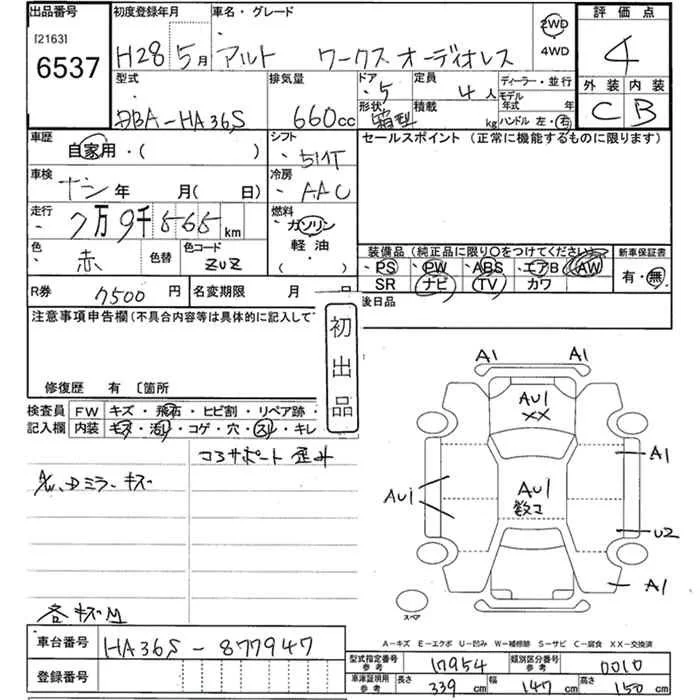 出品番号 初度登録年月 車名・グレード 評価点
[2163]
6537
H28 5月 アルト ワークス オーディオレス 2WD 4WD
4
型式 排気量 ドア 定員 ディーラー・並行
外装 内装
DBA-HA36S 660cc ・5 4人 モデル年式 年
形状 箱型 積載 kg ハンドル 左・右
C B
車歴 シフト セールスポイント (正常に機能するものに限ります)
自家用・( ) 5MT
車検 冷房
ナシ年 月( 日) AAC
走行 燃料
7万9千565km ガソリン
軽油
( )
色 赤 色替 色コード ZUZ
装備品(純正品に限り○をつけてください) 新車保証書
PS PW ABS エアB AW 有・無
SR ナビ TV カワ
R券 7500円 名変期限 月 日
後日品
注意事項申告欄(不具合内容等は具体的に記入して
初出品
修復歴 有 〔箇所
検査員 FW キズ・飛石・ヒビ割・リペア跡・
記入欄 内装 キズ・汚レ・コゲ・穴・スレ・キレ
コアサポート歪み
AW、Dミラーキズ
各キズM
A1 A1
AU1
XX
A1
AU1
AU1
数コ
U2
A1
スペア
A-キズ E-エクボ U-凹み W-補修跡 S-サビ C-腐食 XX-交換済
車台番号 HA36S-877947
型式指定番号 参考 17954 類別区分番号 参考 0010
登録番号
車庫証明用 参考 長さ 339cm 幅 147cm 高さ 150cm